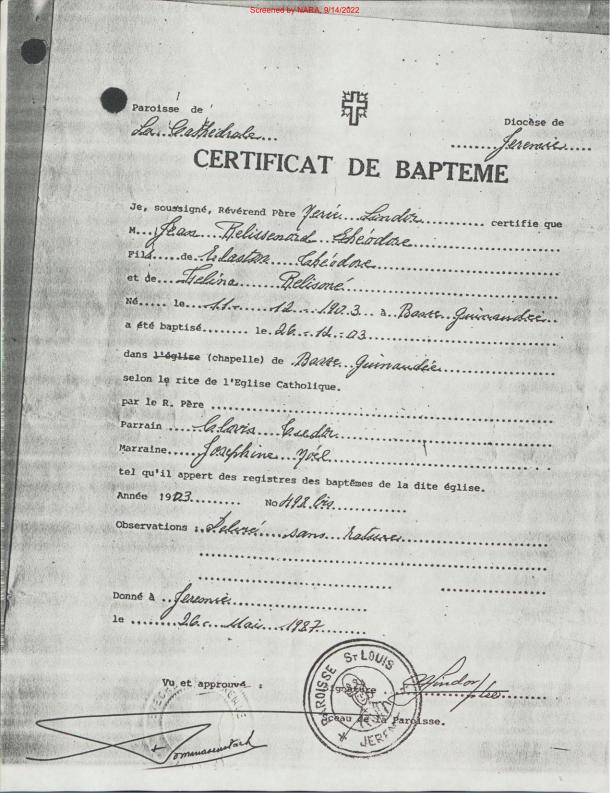 Screened by NARA, 9/14/2022
Paroisse de
La Cathédrale...
Diocèse de
........Jeremie.....
CERTIFICAT DE BAPTEME
Je, soussigné, Révérend Père ... Lindor........... certifie que
M...Jean Relissenord Théodore
Fils....de Elaston Théodore
et de...Felina Relisoné
Né..... le...11... 12...1903... à Basse Guinaudée...
a été baptisé........ le.26..12..03
dans l'église (chapelle) de Basse Guinaudée
selon le rite de l'Eglise Catholique.
par le R. Père
Parrain
Marraine....Joséphine Noël
tel qu'il appert des registres des baptêmes de la dite église.
Année 1903......... No 498 bis
Observations :.Délivré...sans ratures
Donné à ..Jeremie
le .......26...Mai...1987
Vu et approuvé :
Signature
Sceau de la Paroisse.
PAROISSE ST LOUIS